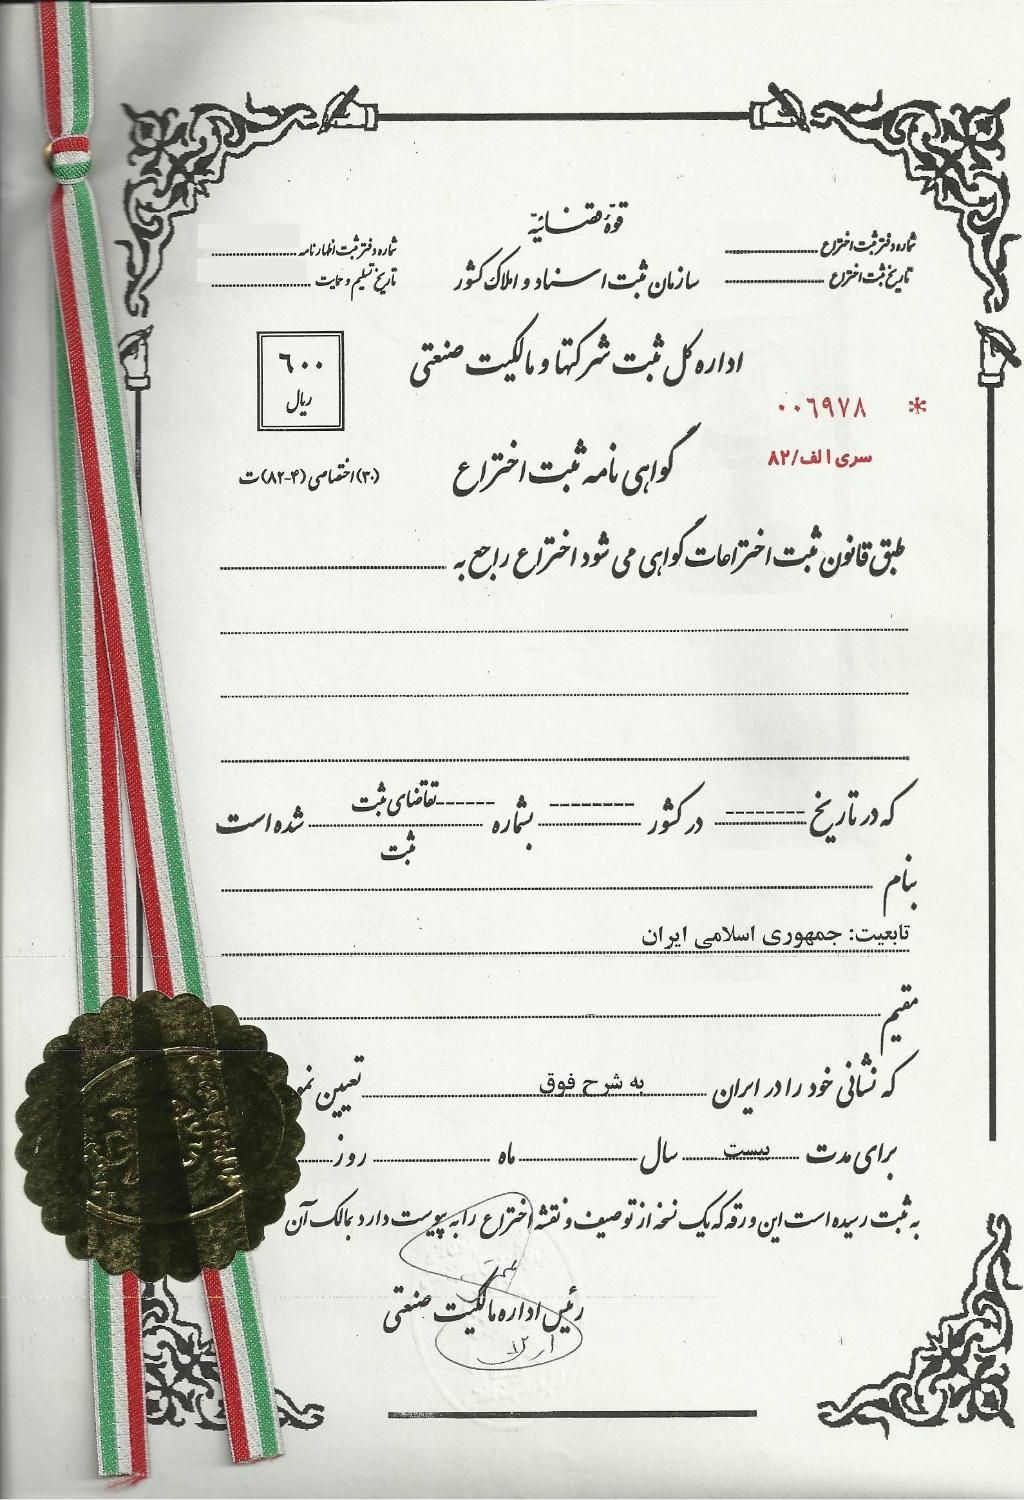 قوّهٔ قضائیّه
شماره دفتر ثبت اختراع
شماره دفتر ثبت اظهارنامه
سازمان ثبت اسناد و املاک کشور
تاریخ ثبت اختراع
تاریخ تسلیم و حمایت
اداره کل ثبت شرکتها و مالکیت صنعتی
۶۰۰
ریال
* ۰۰۶۹۷۸
سری الف/۸۲
گواهی نامه ثبت اختراع
(۳۰) اختصاصی (۴-۸۲) ت
طبق قانون ثبت اختراعات گواهی می شود اختراع راجع به
که در تاریخ -------- در کشور -------- بشماره ------ تقاضای ثبت شده است
ثبت
بنام
تابعیت: جمهوری اسلامی ایران
مقیم
که نشانی خود را در ایران به شرح فوق تعیین نمو
برای مدت بیست سال ماه روز
به ثبت رسیده است این ورقه که یک نسخه از توصیف و نقشه اختراع را به پیوست دارد بمالک آن
رئیس اداره مالکیت صنعتی